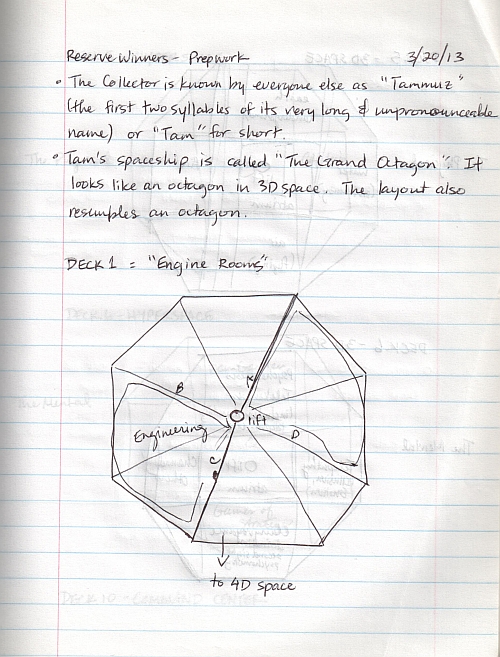 Reserve Winners - Prepwork 3/20/13
• The Collector is known by everyone else as "Tammuz"
(the first two syllables of its very long & unpronounceable
name) or "Tam" for short.
• Tam's spaceship is called "The Grand Octagon". It
looks like an octagon in 3D space. The layout also
resembles an octagon.
DECK 1 = "Engine Rooms"
A
B
lift
Engineering
D
C
to 4D space